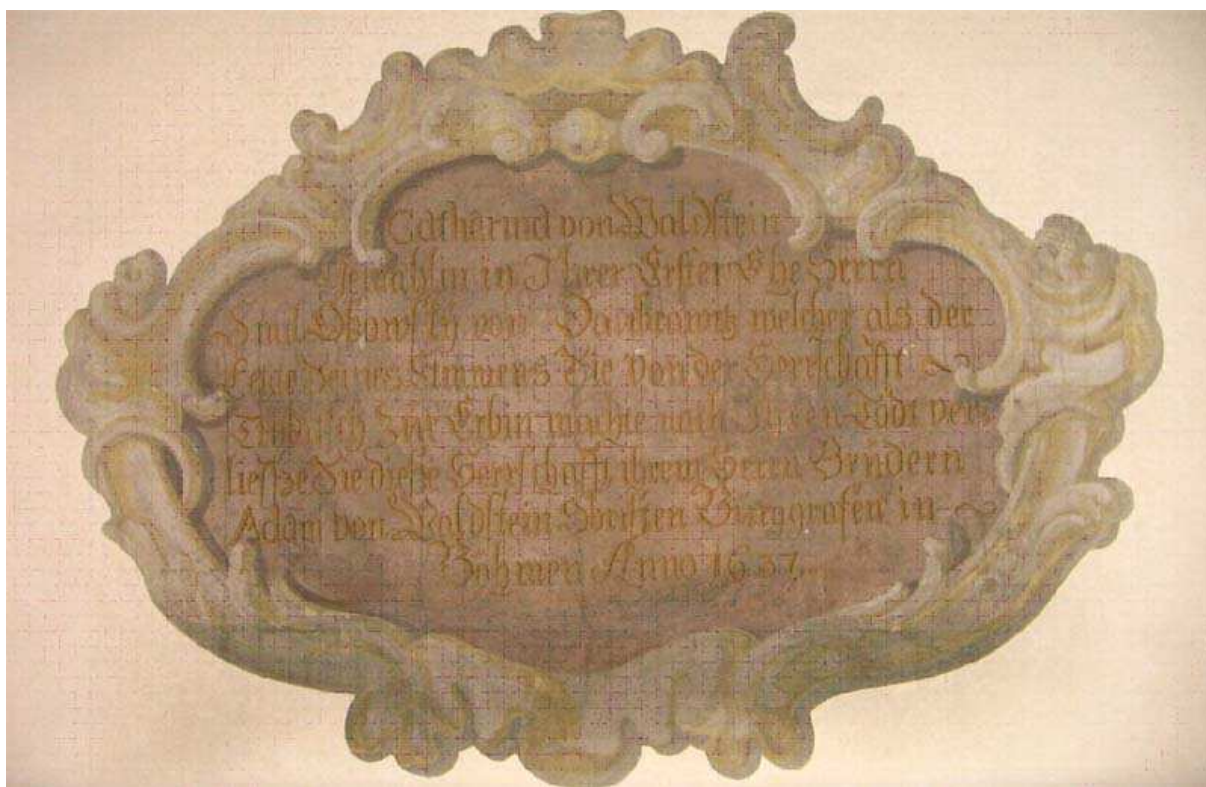 Catharina von Waldstein
Gemahlin in Ihrer Erster Ehe Herrn
von welcher als der
Seines Sie von der Herrschafft
Trebitsch Zur Erbin machte nach Ihren Todt ver=
liesse Sie diesse Herrschafft ihrem Herrn Brüdern
Adam von Waldstein Obristen Burggrafen in
Böhmen Anno 1637.